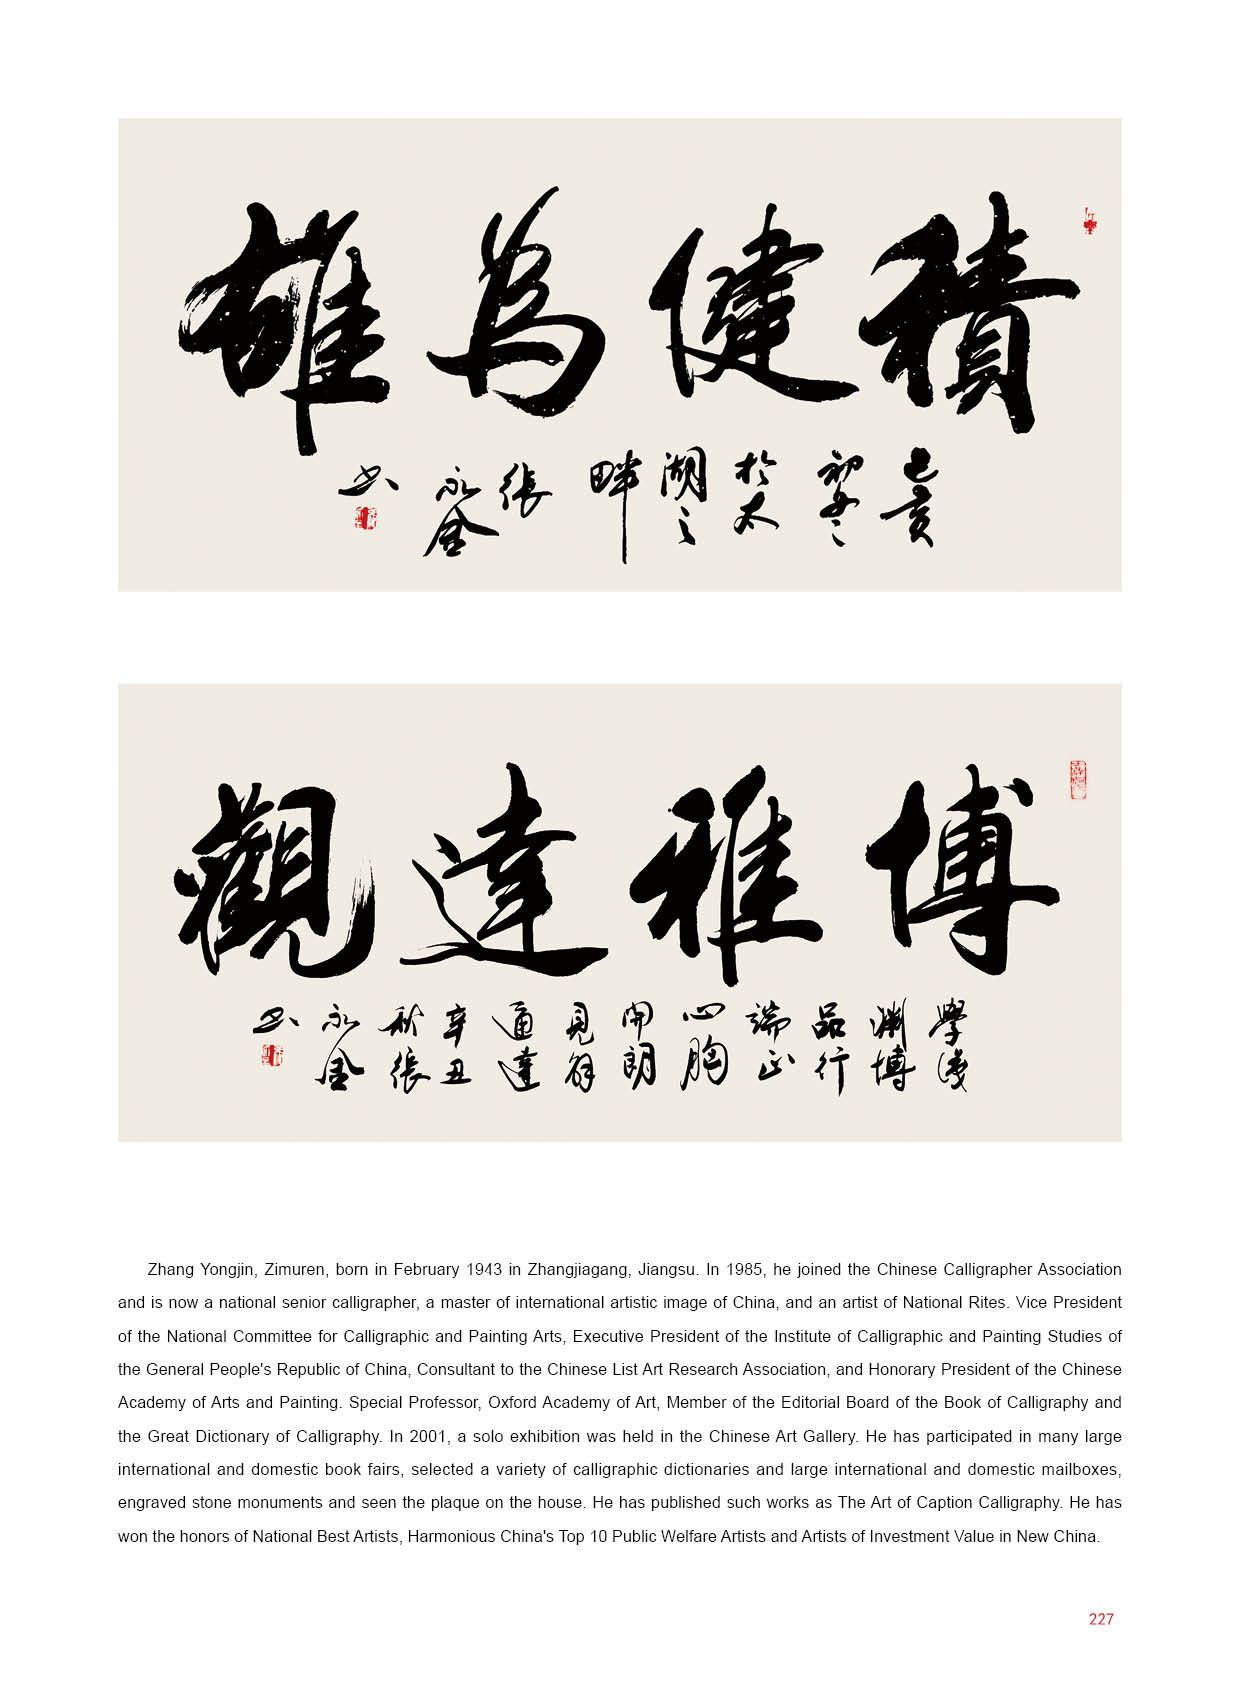 積健為雄
己亥
初冬
於太
湖之
畔
張
永金
書
博雅達觀
學識
淵博
品行
端正
心胸
開朗
見解
通達
辛丑
秋張
永金
書
Zhang Yongjin, Zimuren, born in February 1943 in Zhangjiagang, Jiangsu. In 1985, he joined the Chinese Calligrapher Association
and is now a national senior calligrapher, a master of international artistic image of China, and an artist of National Rites. Vice President
of the National Committee for Calligraphic and Painting Arts, Executive President of the Institute of Calligraphic and Painting Studies of
the General People's Republic of China, Consultant to the Chinese List Art Research Association, and Honorary President of the Chinese
Academy of Arts and Painting. Special Professor, Oxford Academy of Art, Member of the Editorial Board of the Book of Calligraphy and
the Great Dictionary of Calligraphy. In 2001, a solo exhibition was held in the Chinese Art Gallery. He has participated in many large
international and domestic book fairs, selected a variety of calligraphic dictionaries and large international and domestic mailboxes,
engraved stone monuments and seen the plaque on the house. He has published such works as The Art of Caption Calligraphy. He has
won the honors of National Best Artists, Harmonious China's Top 10 Public Welfare Artists and Artists of Investment Value in New China.
227